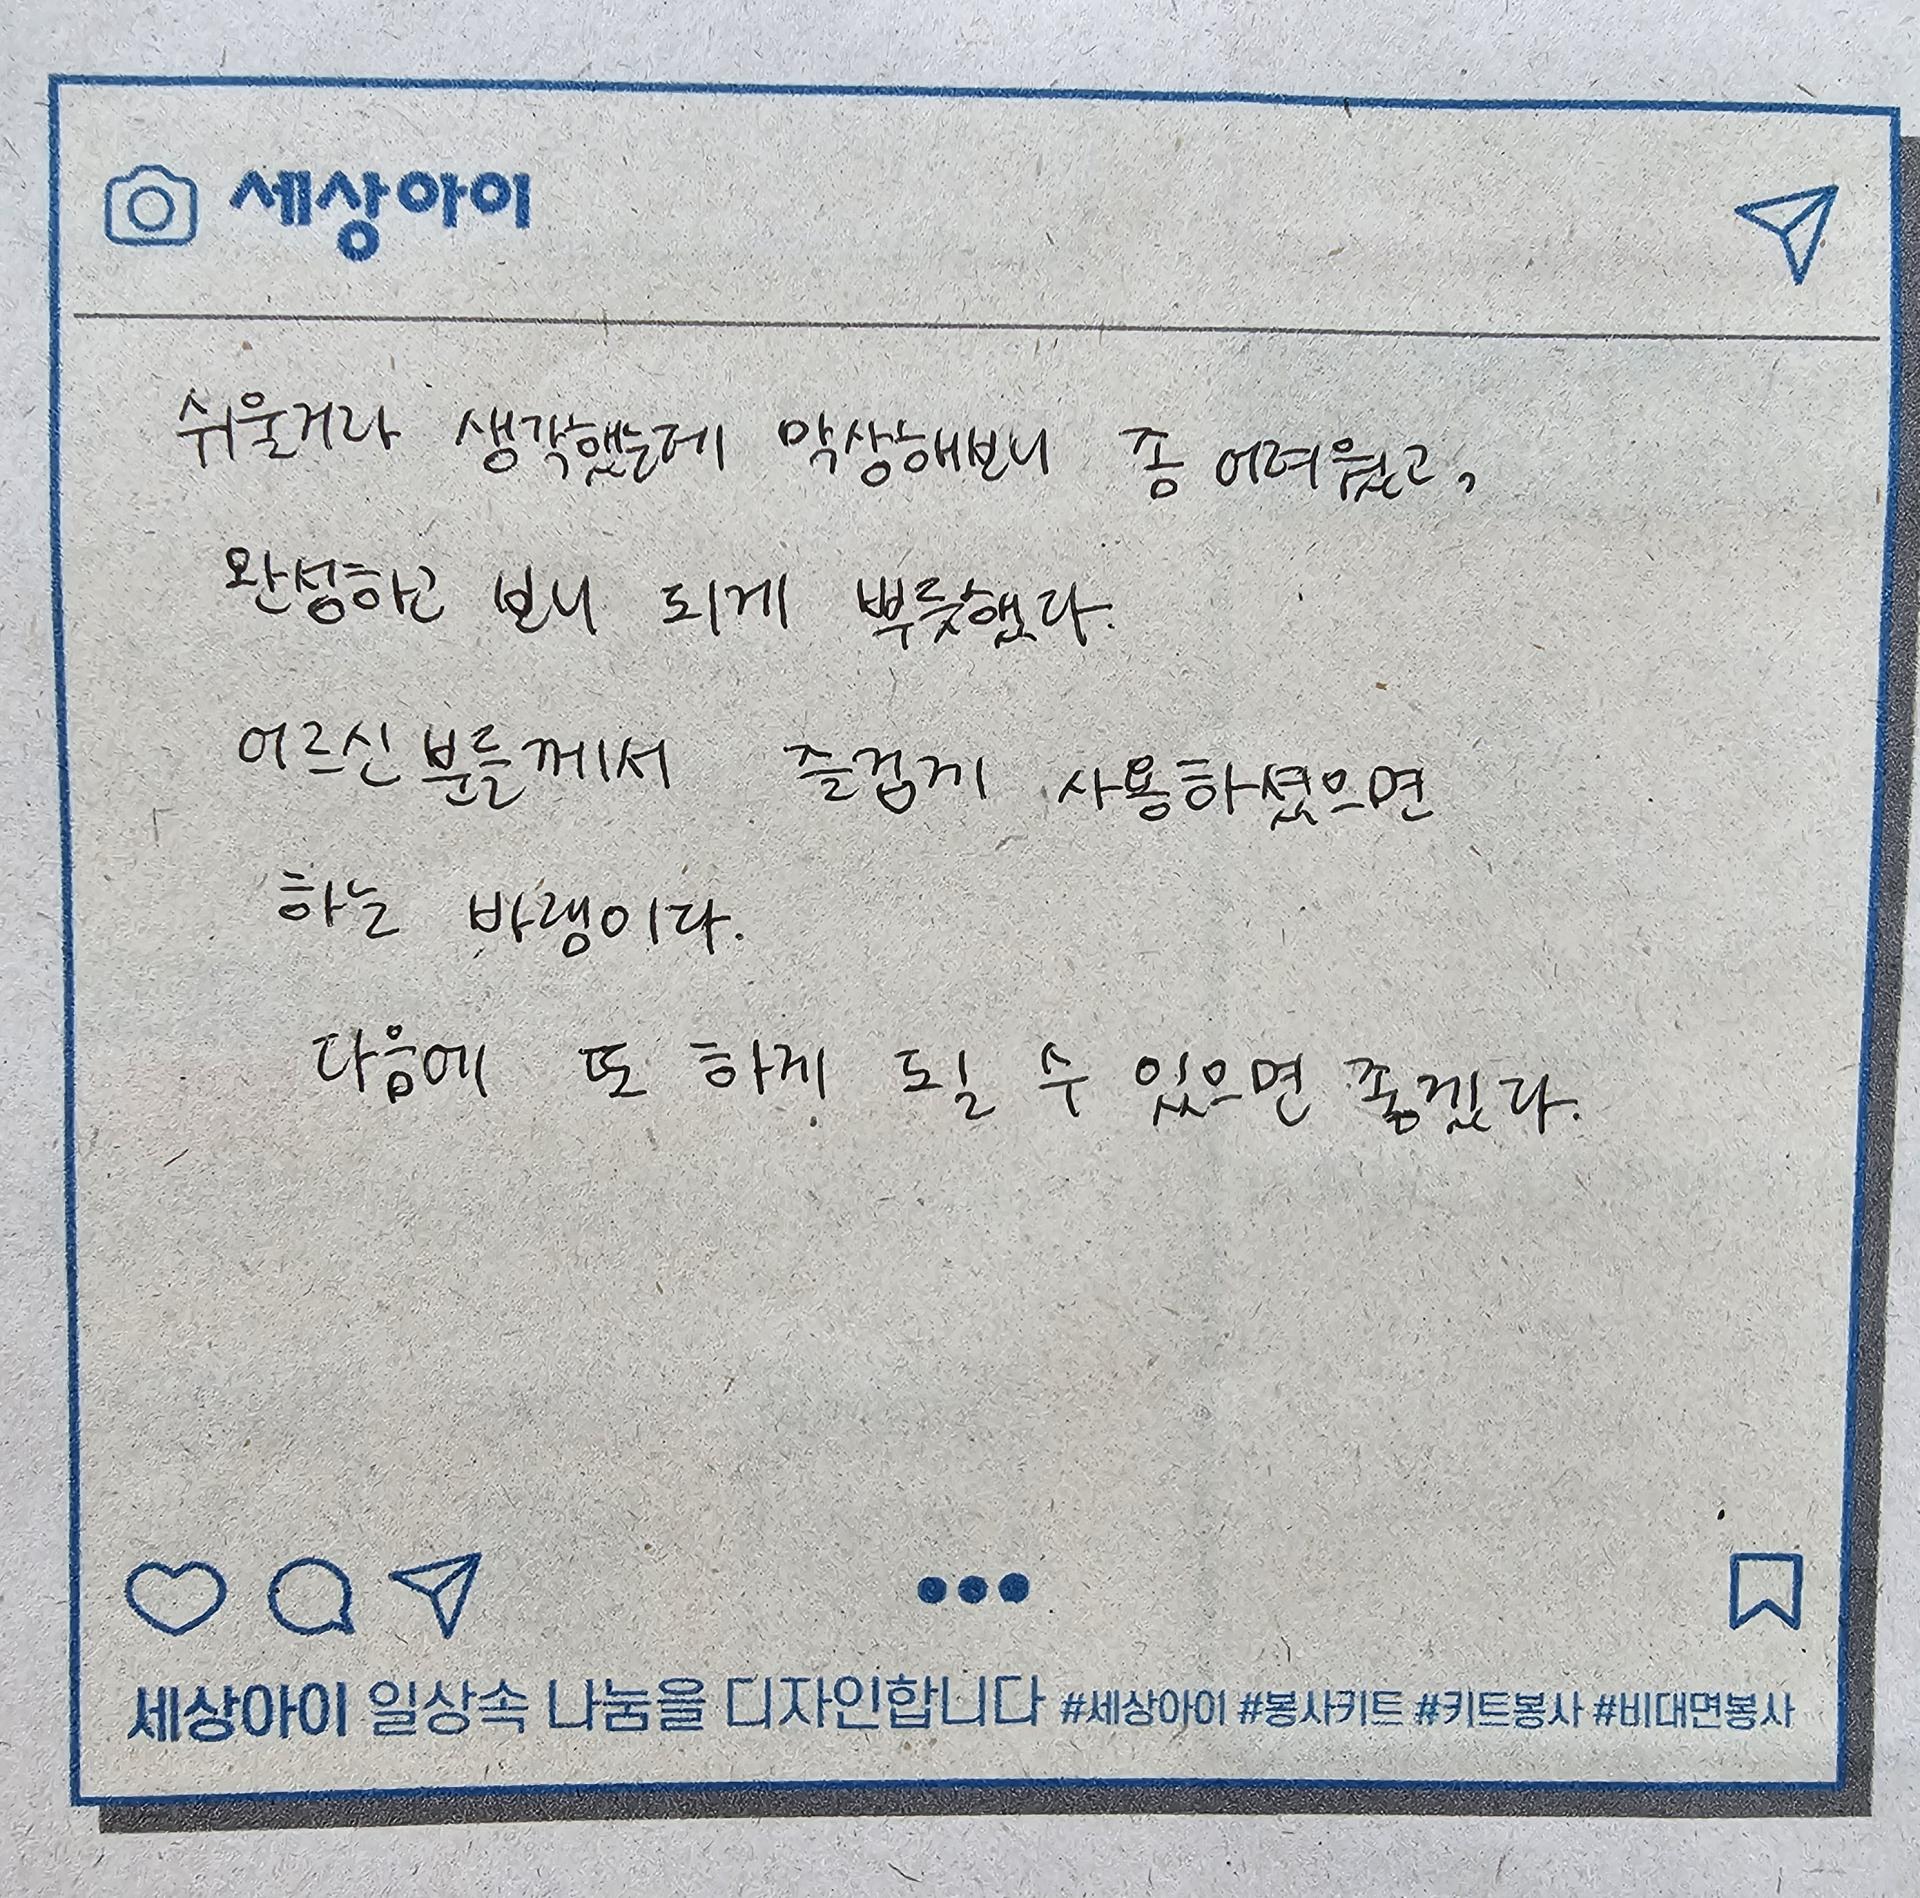 세상아이
쉬울거라 생각했는데 막상해보니 좀 어려웠고,
완성하고 보니 되게 뿌듯했다.
어르신분들께서 즐겁게 사용하셨으면
하는 바램이다.
다음에 또 하게 될 수 있으면 좋겠다.
세상아이 일상속 나눔을 디자인합니다 #세상아이 #봉사키트 #키트봉사 #비대면봉사